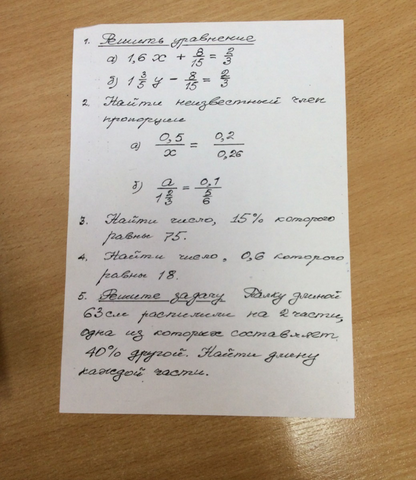 1. Решить уравнение
а) 1,6 x + 8/15 = 2/3
б) 1 3/5 y - 8/15 = 2/3
2. Найти неизвестный член
пропорции
а) 0,5/x = 0,2/0,26
б) a/1 2/3 = 0,1/5/6
3. Найти число, 15% которого
равны 75.
4. Найти число, 0,6 которого
равны 18.
5. Решите задачу Палку длиной
63см распилили на 2 части,
одна из которых составляет
40% другой. Найти длину
каждой части.